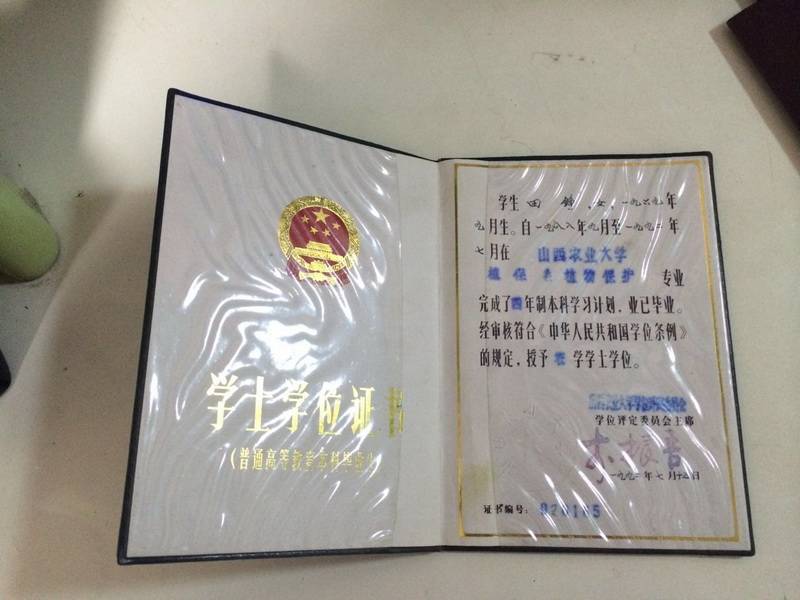 学士学位证书
（普通高等教育本科毕业生
学生 田 女，一九六九年
九月生。自一九八八年九月至一九九二年
七月在 山西农业大学
植保系植物保护 专业
完成了四年制本科学习计划，业已毕业。
经审核符合《中华人民共和国学位条例》
的规定，授予 农 学学士学位。
学位评定委员会主席
一九九二年七月十二日
证书编号：920165